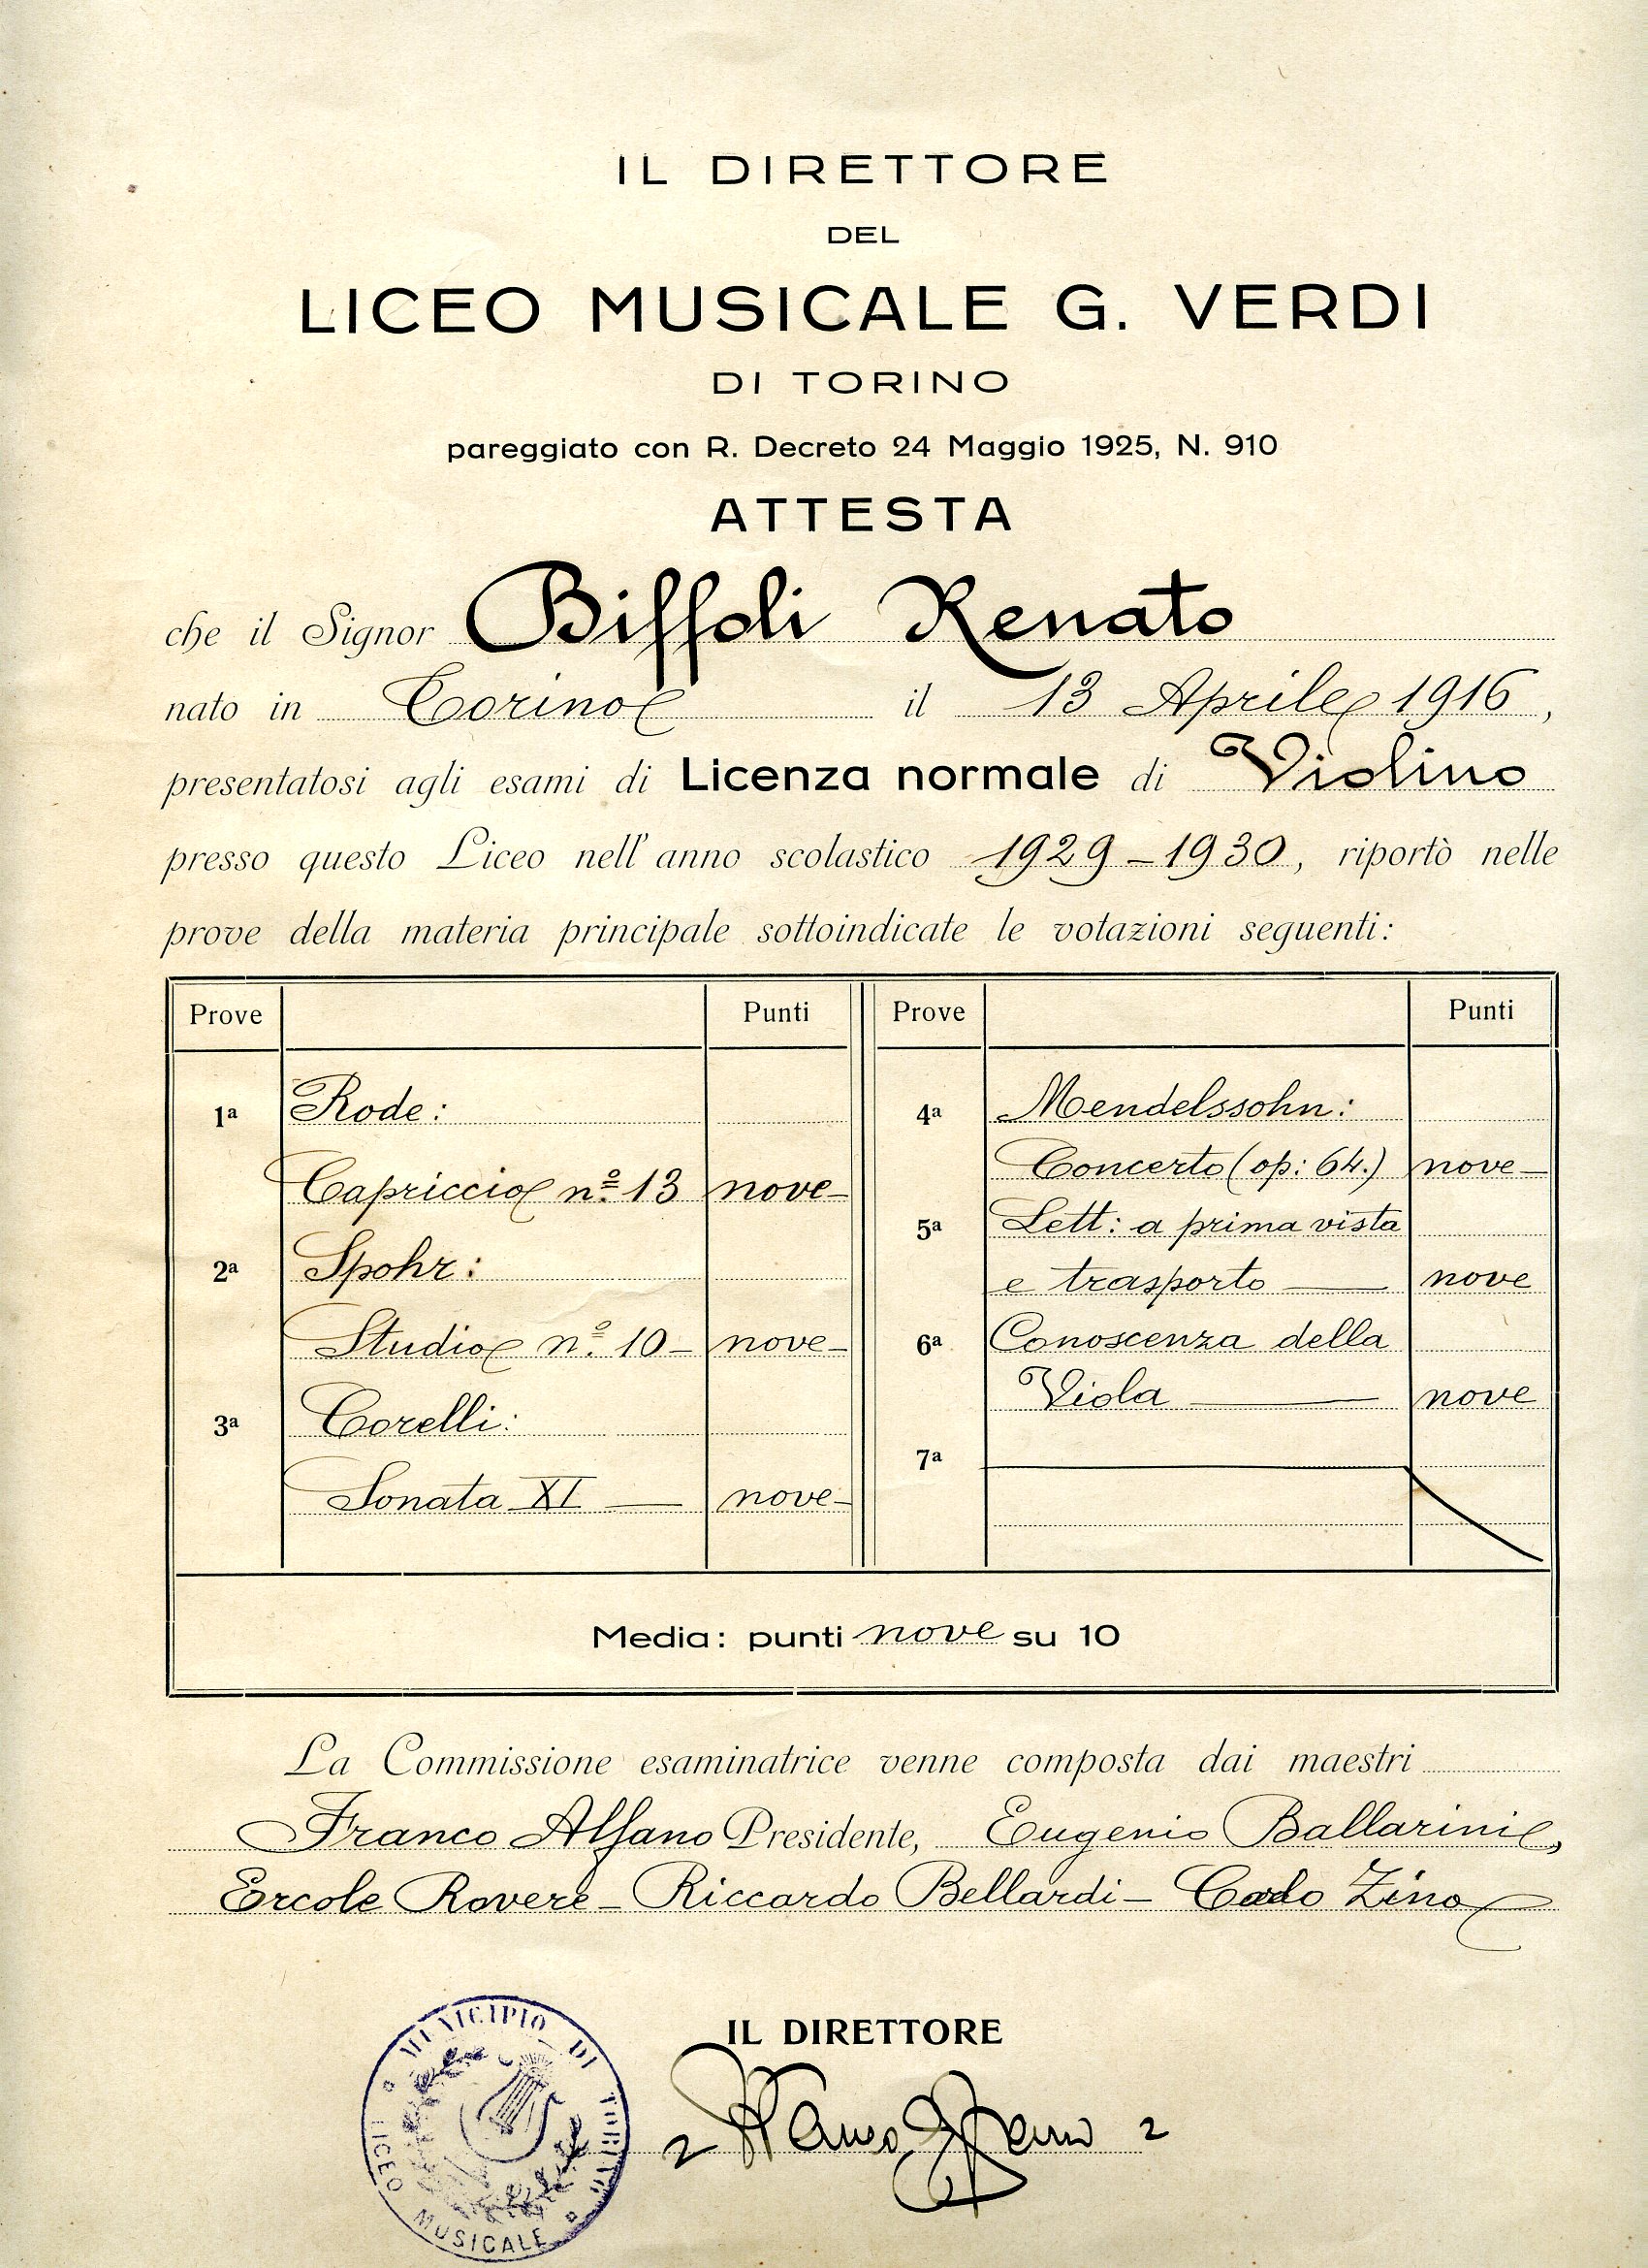 IL DIRETTORE
DEL
LICEO MUSICALE G. VERDI
DI TORINO
pareggiato con R. Decreto 24 Maggio 1925, N. 910
ATTESTA
che il Signor Biffoli Renato
nato in Torino il 13 Aprile 1916,
presentatosi agli esami di Licenza normale di Violino
presso questo Liceo nell'anno scolastico 1929-1930, riportò nelle
prove della materia principale sottoindicate le votazioni seguenti:
Prove Punti
1a Rode:
Capriccio nº 13 nove
2a Spohr:
Studio nº 10 nove
3a Corelli:
Sonata XI nove
Prove Punti
4a Mendelssohn:
Concerto (op: 64.) nove
5a Lett: a prima vista
e trasporto nove
6a Conoscenza della
Viola nove
7a
Media: punti nove su 10
La Commissione esaminatrice venne composta dai maestri
Franco Alfano Presidente, Eugenio Ballarini,
Ercole Rovere - Riccardo Bellardi - Carlo Zino
IL DIRETTORE
Franco Alfano
MUNICIPIO DI TORINO
LICEO MUSICALE